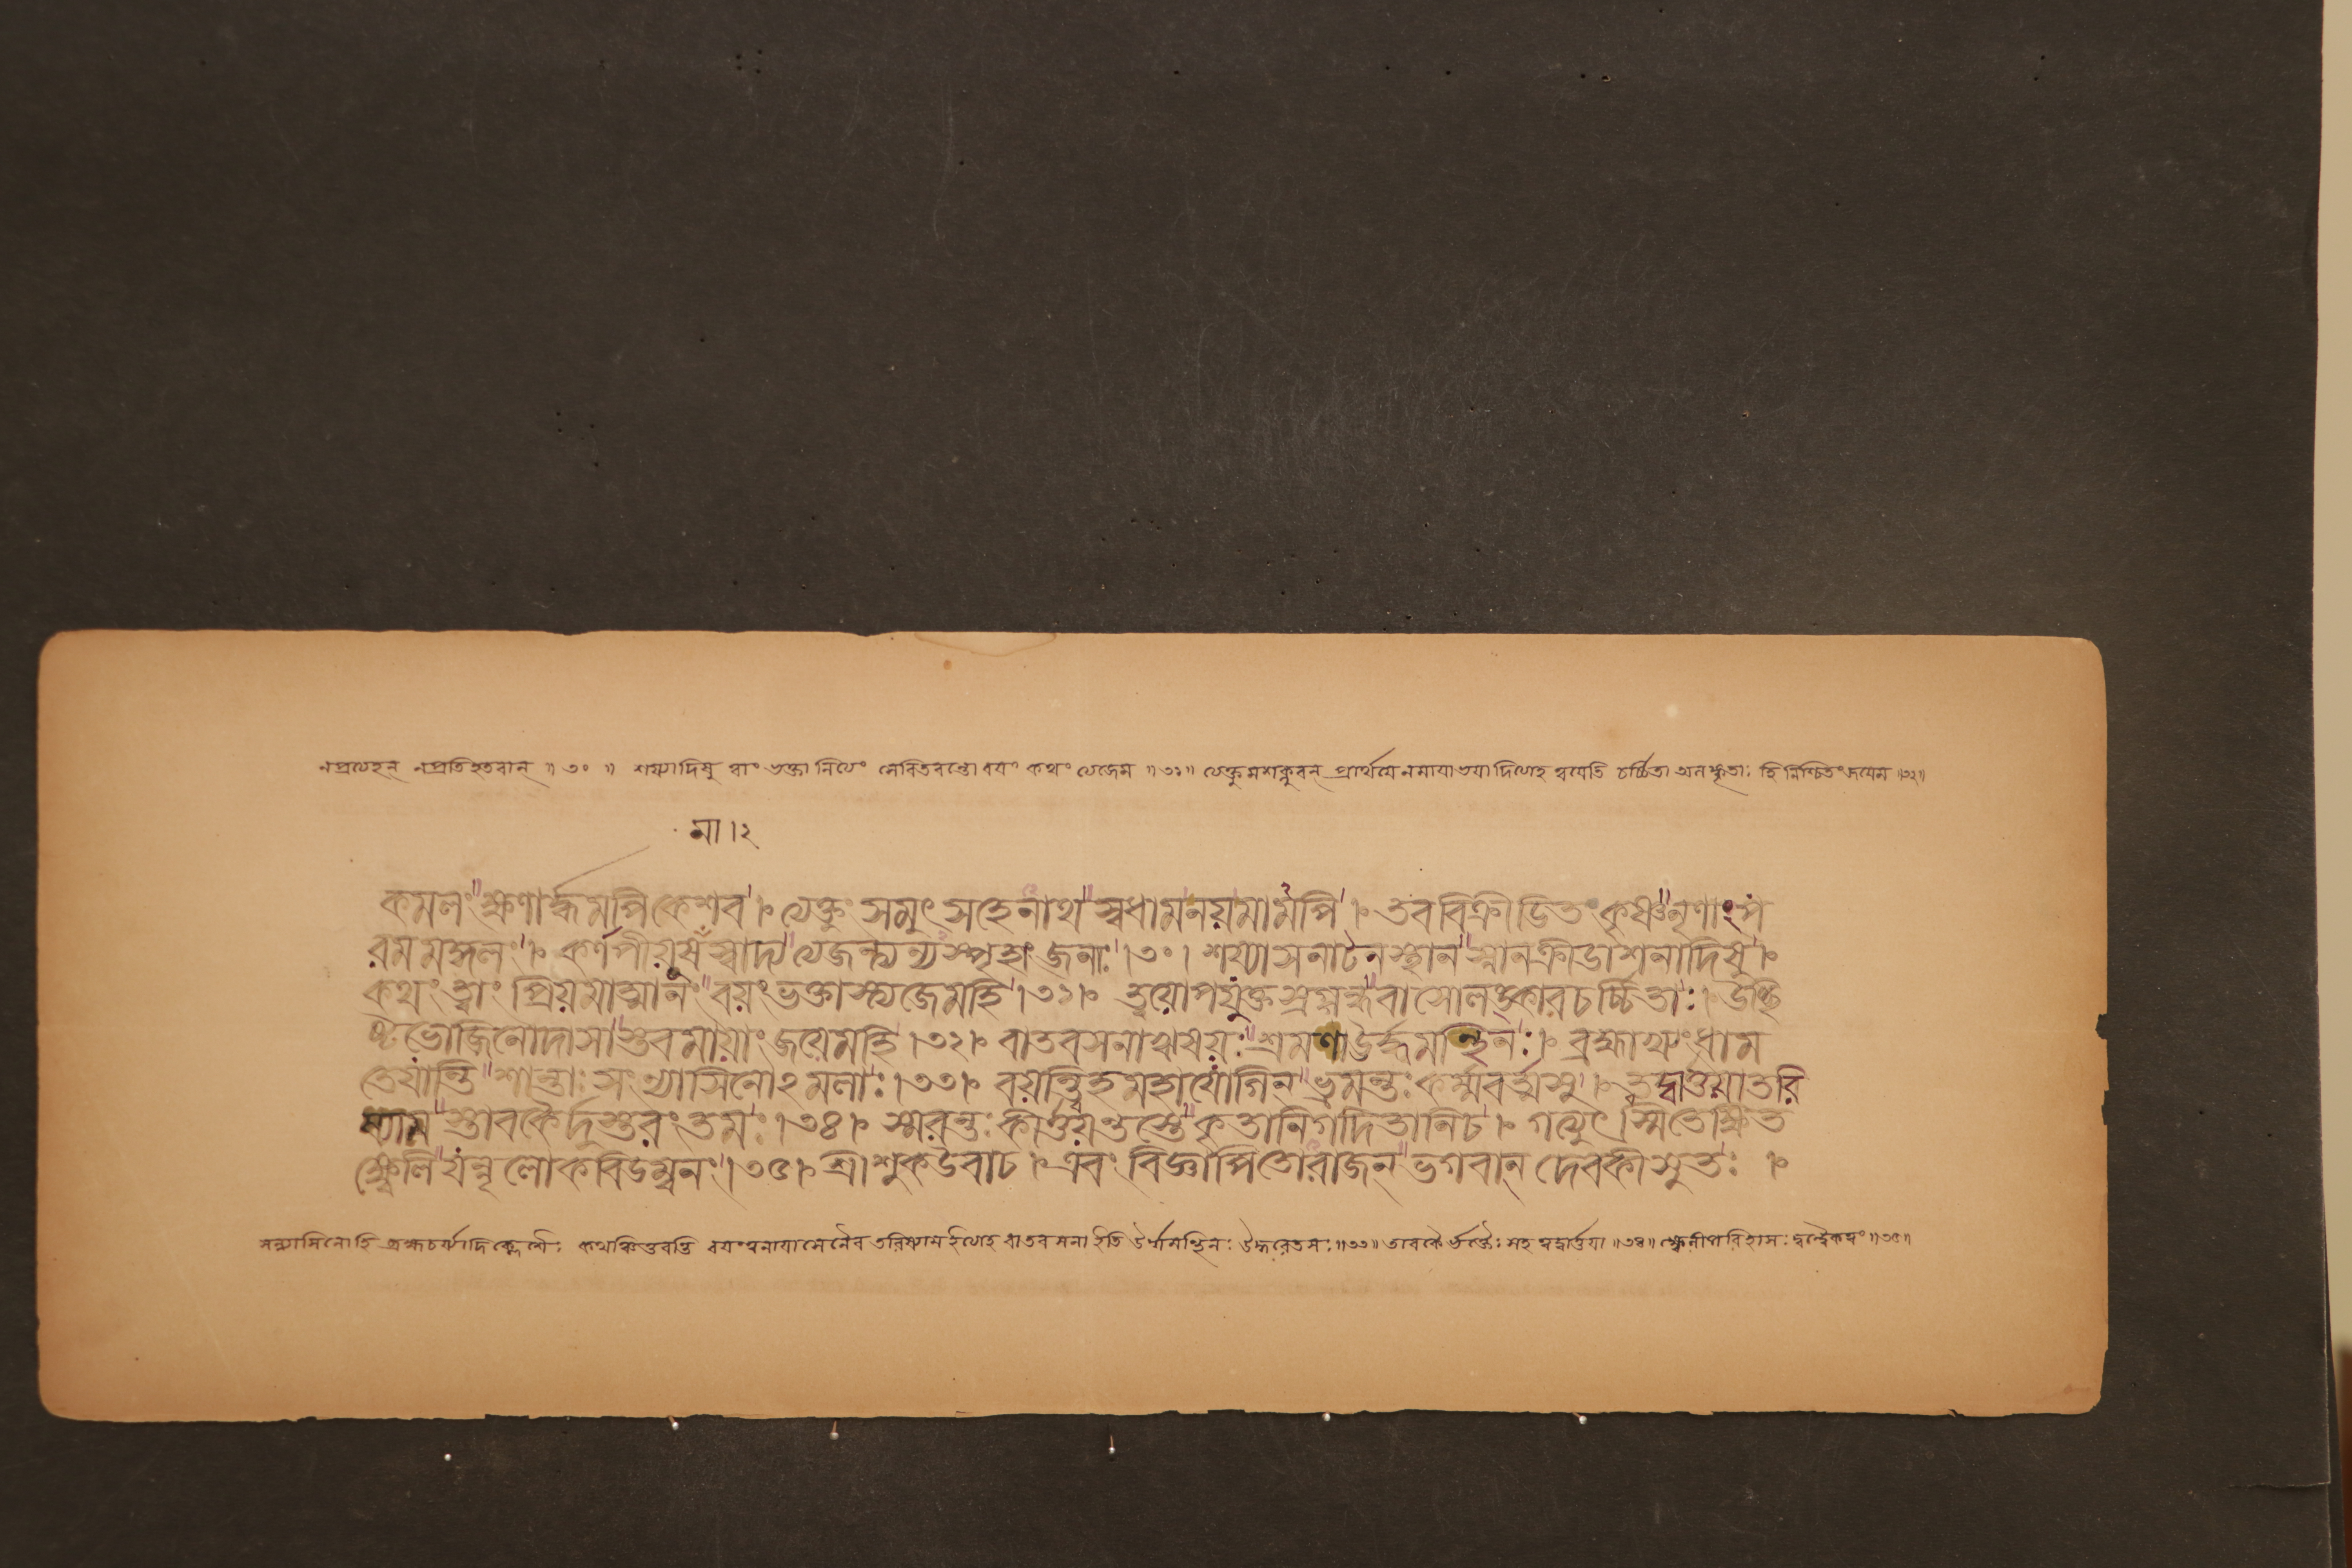 নপ্রত্যহন্ নপ্রতিহতবান্ ॥ ৩০ ॥ শয্যাদিষু ত্বাং ভক্তা নিত্যং সেবিতবন্তো বয়ং কথং ত্যজেম ॥ ৩১ ॥ ত্যক্তুমশক্নুবন্ প্রার্থয়ে নমায়াভয়াদিত্যাহ ত্বয়েতি চর্চ্চিতা অলঙ্কৃতাঃ হি নিশ্চিতং জয়েম ॥৩২॥
মা।২
কমলং ক্ষণার্দ্ধমপি কেশব। ত্যক্তুং সমুৎসহে নাথ স্বধাম নয় মামপি। তব বিক্রীডিতং কৃষ্ণ নৃণাং প
রমমঙ্গলং। কর্ণপীয়ূষমাস্বাদ্য ত্যজন্ত্যন্যস্পৃহাং জনাঃ।৩০। শয্যাসনাটনস্থান স্নানক্রীডাশনাদিষু।
কথং ত্বাং প্রিয়মাত্মানং বয়ং ভক্তাস্ত্যজেমহি।৩১। ত্বয়োপযুক্তস্রগ্গন্ধবাসোলঙ্কারচর্চ্চিতাঃ। উচ্ছি
ষ্টভোজিনো দাসাস্তব মায়াং জয়েমহি।৩২। বাতবসনা ঋষয়ঃ শ্রমণা ঊর্দ্ধমন্থিনঃ। ব্রহ্মাখ্যং ধাম
তে যান্তি শান্তাঃ সংন্যাসিনোঽমলাঃ।৩৩। বয়ন্ত্বিহ মহাযোগিন্ ভ্রমন্তঃ কর্ম্মবর্ত্মসু। ত্বদ্বার্ত্তয়া তরি
ষ্যাম স্তাবকৈর্দুস্তরং তমঃ।৩৪। স্মরন্তঃ কীর্ত্তয়ন্তস্তে কৃতানি গদিতানি চ। গত্যুৎস্মিতেক্ষিত
ক্ষ্বেলি যন্নৃলোকবিডম্বনং।৩৫। শ্রীশুক উবাচ। এবং বিজ্ঞাপিতো রাজন্ ভগবান্ দেবকীসুতঃ।
সন্ন্যাসিনোহি ব্রহ্মচর্য্যাদি ক্লেশৈঃ কথঞ্চিত্তরন্তি বয়ংত্বনায়াসেনৈব তরিষ্যাম ইত্যাহ বাতবসনা ইতি ঊর্দ্ধমন্থিনঃ ঊর্দ্ধরেতসঃ ॥৩৩॥ তাবকৈ র্ভক্তৈঃ সহ ত্বদ্বার্ত্তয়া ॥৩৪॥ ক্ষ্বেলীপরিহাসঃ দ্বন্দ্বৈকত্বং ॥৩৫॥